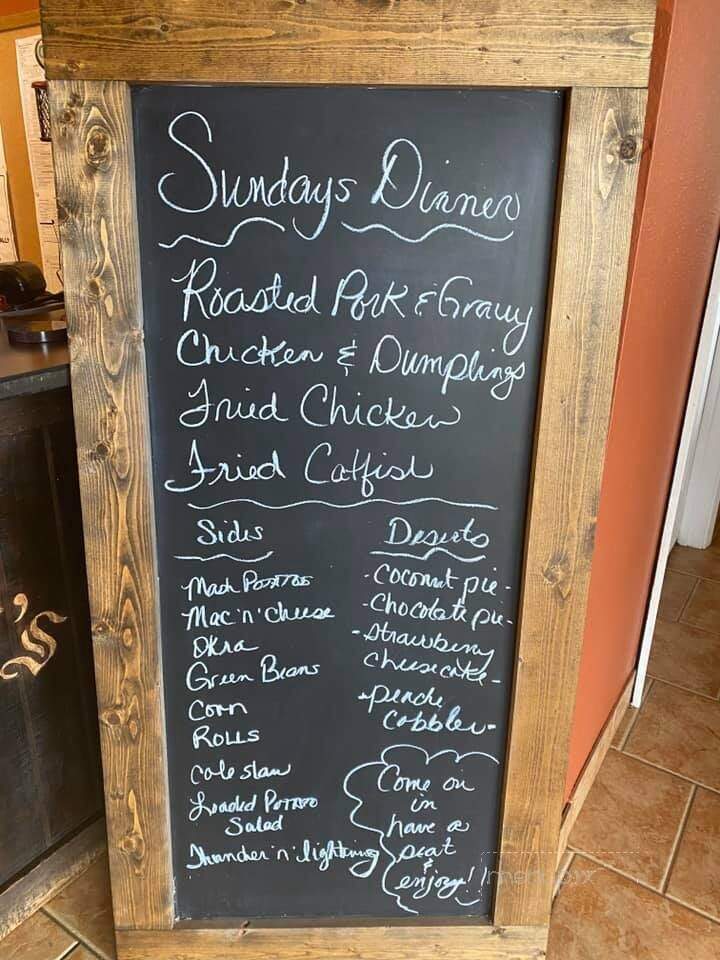 Sundays Dinner
Roasted Pork & Gravy
Chicken & Dumplings
Fried Chicken
Fried Catfish
Sides
Mash Potatoes
Mac'n'cheese
Okra
Green Beans
Corn
Rolls
Coleslaw
Loaded Potato
Salad
Thunder'n'lightning
Deserts
-coconut pie-
-Chocolate pie-
-Strawberry
cheesecake-
-peach
cobbler-
Come on
in
have a
seat
&
enjoy!
's
menupix